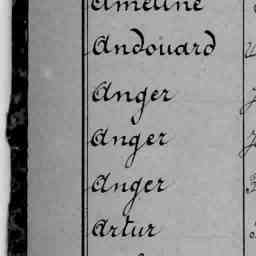 Ameline
Andouard
Anger
Anger
Anger
Artur